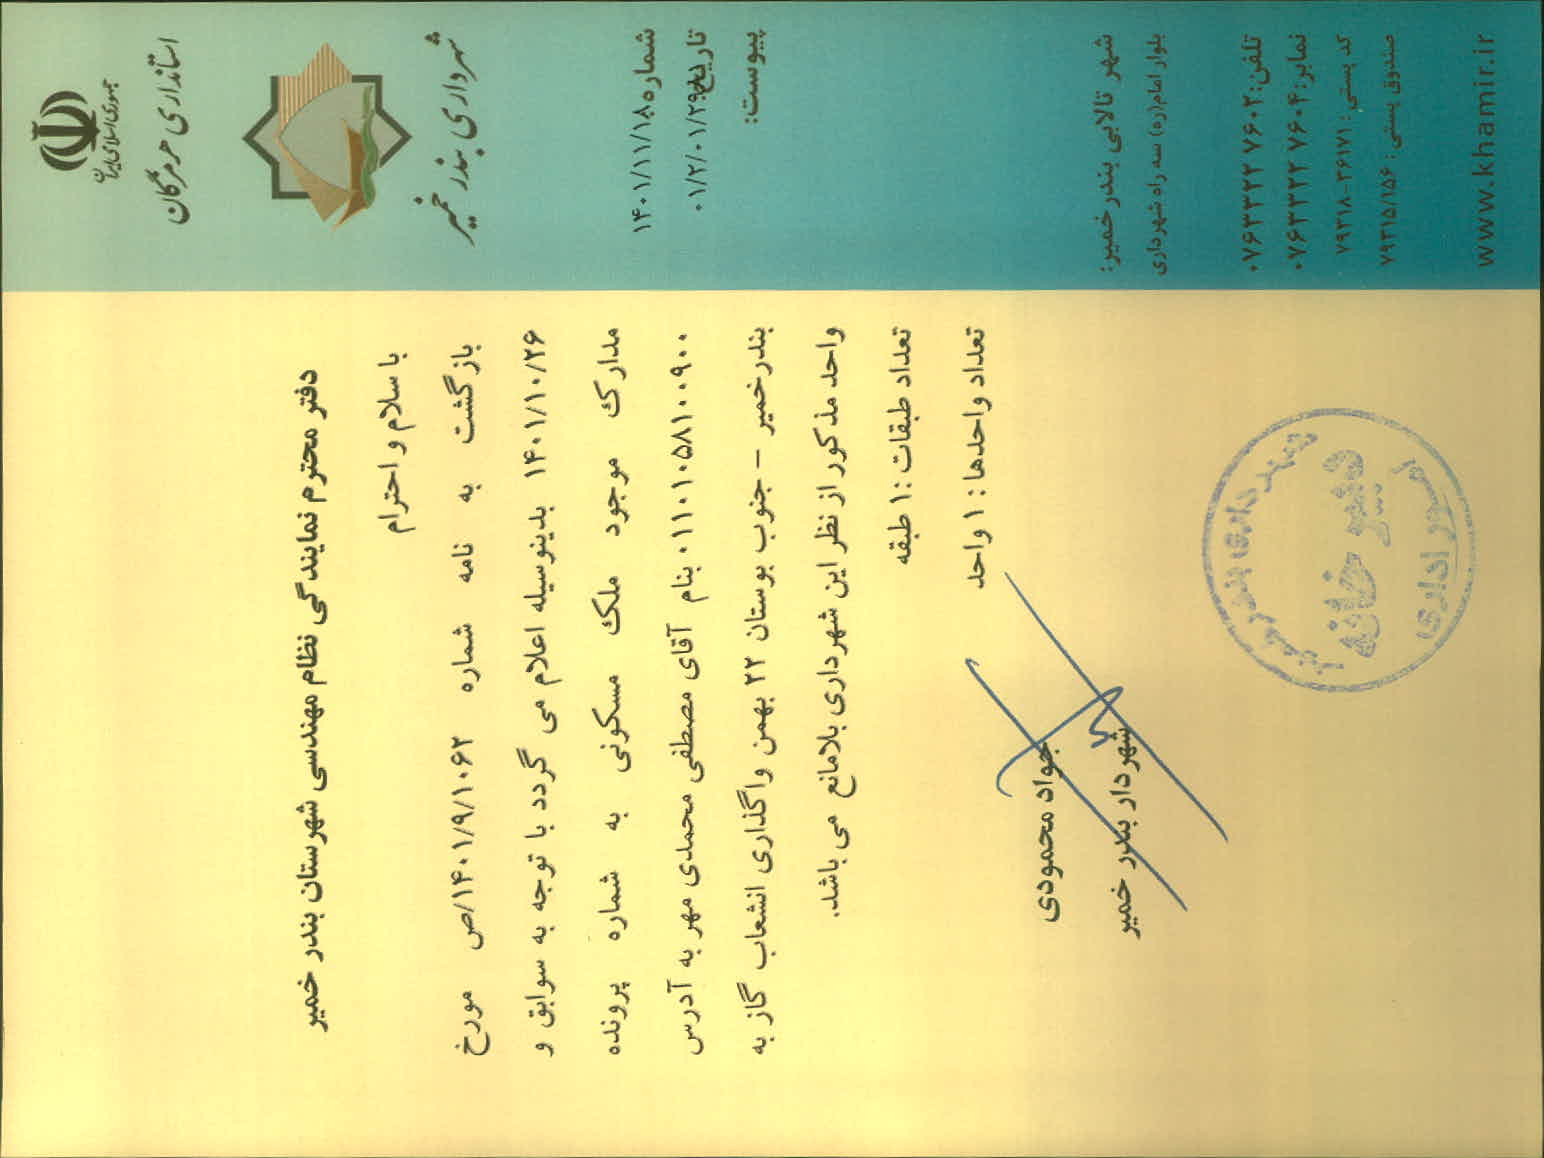 جمهوری اسلامی ایران
استانداری هرمزگان
شهرداری بندر خمیر
شماره: ۱۴۰۱/۱۱/۱۸
تاریخ: ۰۱/۲/۰۱/۲۹
پیوست:
دفتر محترم نمایندگی نظام مهندسی شهرستان بندر خمیر
با سلام و احترام
بازگشت به نامه شماره ۱۴۰۱/۹/۱۰۶۲/ص مورخ
۱۴۰۱/۱۰/۲۶ بدینوسیله اعلام می گردد با توجه به سوابق و
مدارک موجود ملک مسکونی به شماره پرونده
۰۱۱۰۱۰۵۸۱۰۰۹۰۰ بنام آقای مصطفی محمدی مهر به آدرس
بندرخمیر – جنوب بوستان ۲۲ بهمن واگذاری انشعاب گاز به
واحد مذکور از نظر این شهرداری بلامانع می باشد.
تعداد طبقات :۱ طبقه
تعداد واحدها : ۱ واحد
جواد محمودی
شهردار بندر خمیر
شهرداری بندر خمیر
دبیرخانه
امور اداری
شهر تالابی بندر خمیر:
بلوار امام(ره) سه راه شهرداری
تلفن: ۰۷۶۳۳۲۲ ۷۶۰۲
نمابر: ۰۷۶۳۳۲۲ ۷۶۰۴
کد پستی : ۷۹۳۱۸-۳۶۱۷۱
صندوق پستی : ۷۹۳۱۵/۱۵۶
www.khamir.ir